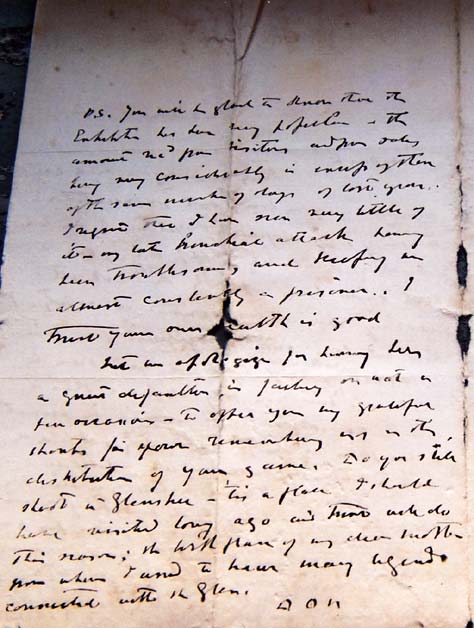 P.S. You will be glad to know that the
Exhibition has been very successful - the
amount rec'd from visitors and from sales
being very considerably in excess of that
of the same number of days of last year.
I regret that I have seen very little of
it - my late Bronchial attack having
been troublesome, and keeping me
almost constantly a prisoner. I
trust your own health is good
Let me apologize for having been
a great defaulter, in failing on
occasion - to offer you my grateful
thanks for your remembering us in the
distribution of your game. Do you still
shoot in Glenshee - tis a place I should
have visited long ago and trust will do
this season; the birth place of my dear mother
from whom I used to hear many legends
connected with the Glen.